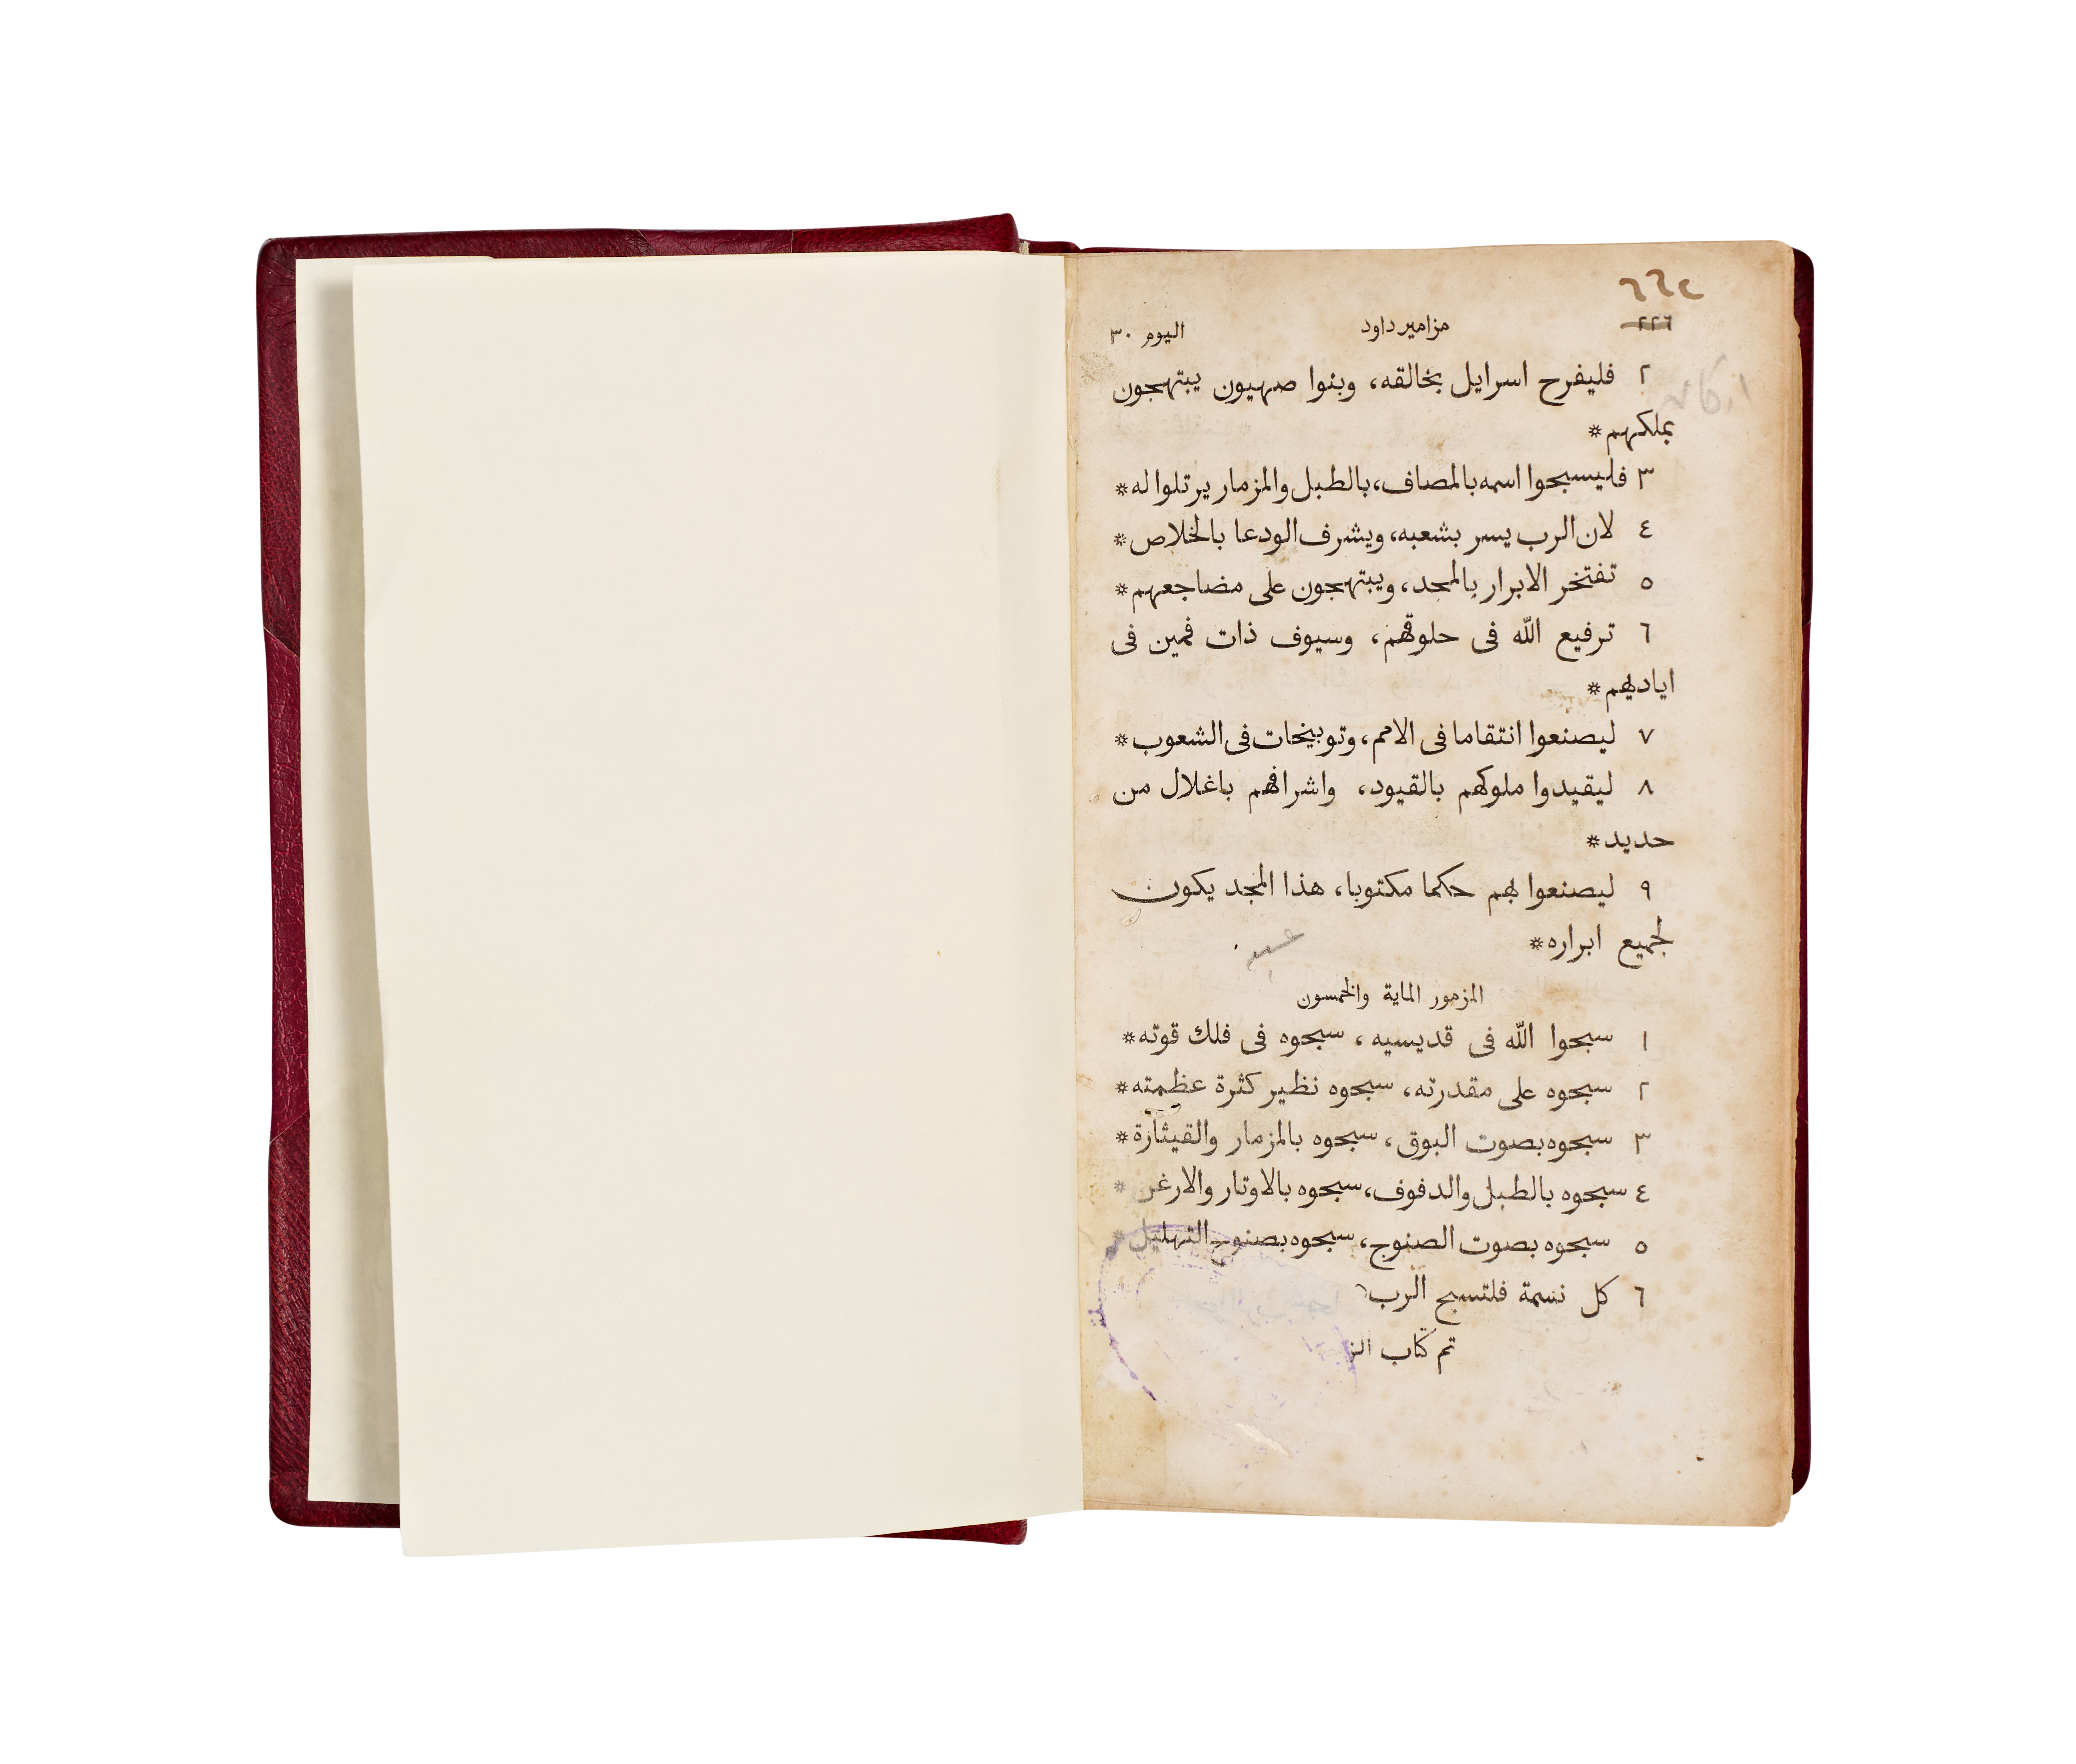 ٢٢٦ مزامير داود اليوم ٣٠
٢ فليفرح اسرايل بخالقه، وبنوا صهيون يبتهجون
بملكهم*
٣ فليسبحوا اسمه بالمصاف، بالطبل والمزمار يرتلوا له*
٤ لان الرب يسر بشعبه، ويشرف الودعا بالخلاص*
٥ تفتخر الابرار بالمجد، ويبتهجون على مضاجعهم*
٦ ترفيع الله فى حلوقهم، وسيوف ذات فمين فى
اياديهم*
٧ ليصنعوا انتقاما فى الامم، وتوبيخات فى الشعوب*
٨ ليقيدوا ملوكهم بالقيود، واشرافهم باغلال من
حديد*
٩ ليصنعوا بهم حكما مكتوبا، هذا المجد يكون
لجميع ابراره*
المزمور الماية والخمسون
١ سبحوا الله فى قديسيه، سبحوه فى فلك قوته*
٢ سبحوه على مقدرته، سبحوه نظير كثرة عظمته*
٣ سبحوه بصوت البوق، سبحوه بالمزمار والقيثارة*
٤ سبحوه بالطبل والدفوف، سبحوه بالاوتار والارغن*
٥ سبحوه بصوت الصنوج، سبحوه بصنوج التهليل*
٦ كل نسمة فلتسبح الرب
تم كتاب